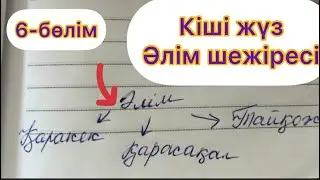 6-бөлім
Кіші жүз
Әлім шежіресі
Әлім
Қаракек
Қарасақал